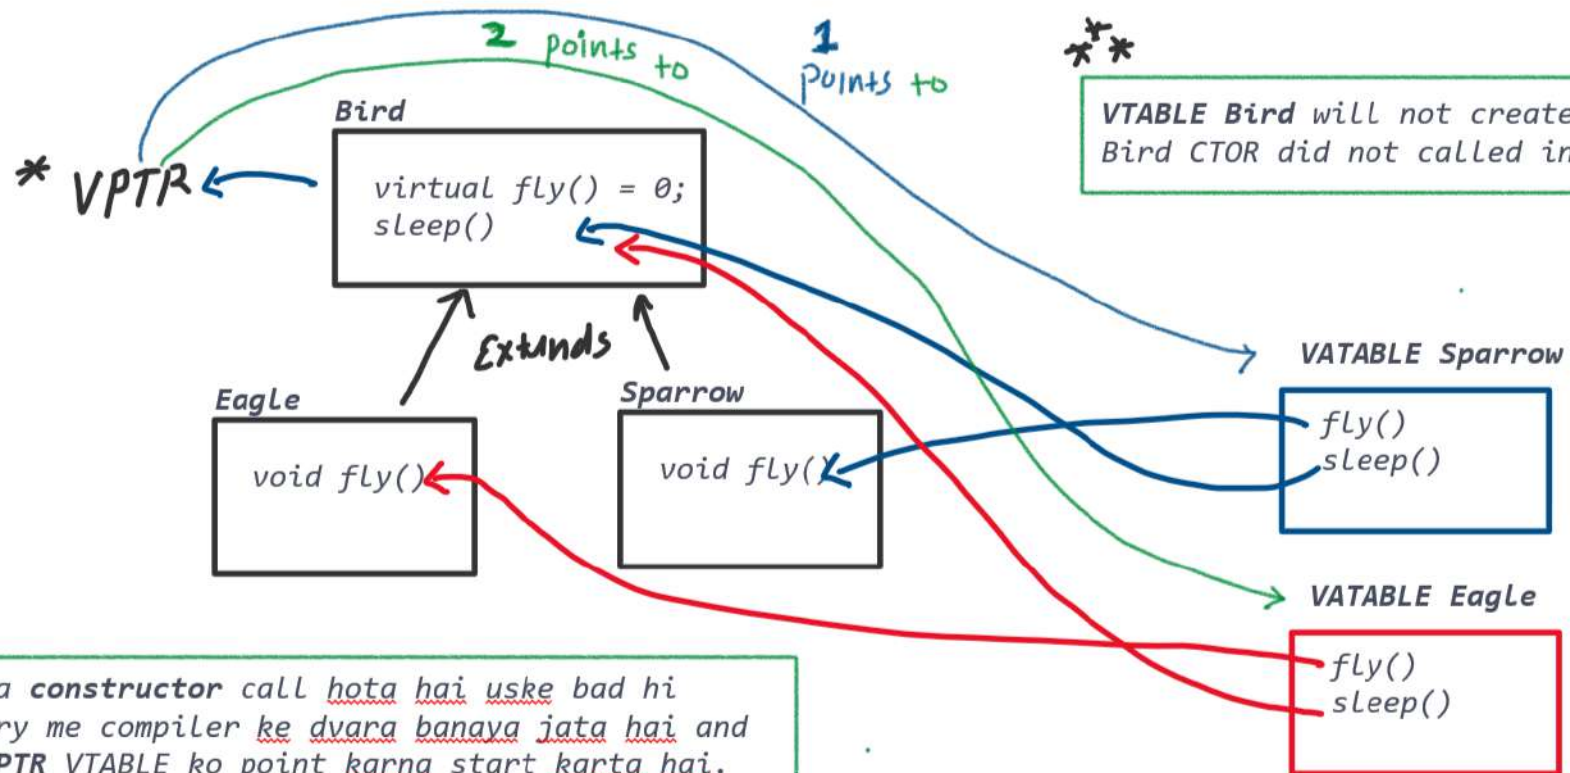 2 points to
1
points to
***
Bird
VTABLE Bird will not create
Bird CTOR did not called in
* VPTR
virtual fly() = 0;
sleep()
Extends
VATABLE Sparrow
Eagle
Sparrow
fly()
sleep()
void fly()
void fly()
VATABLE Eagle
fly()
sleep()
a constructor call hota hai uske bad hi
ry me compiler ke dvara banaya jata hai and
PTR VTABLE ko point karna start karta hai.